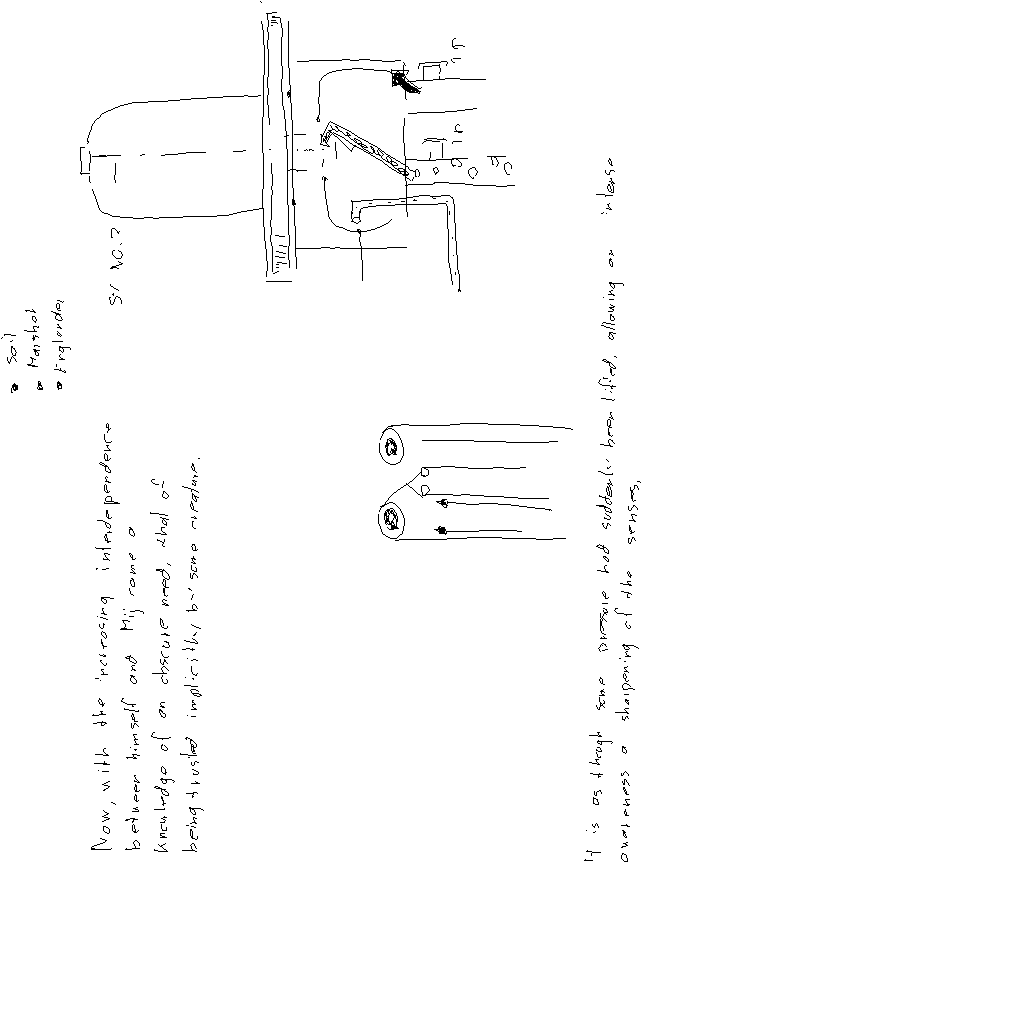 • Soil
• Marshal
• Englander
S/ NO.?
Now, with the increasing interdependence
between himself and Mij came a
knowledge of an obscure need, that of
being trusted implicitly by some creature.
It is as though some pressure had suddenly been lifted, allowing an intense
awareness a sharpening of the senses,